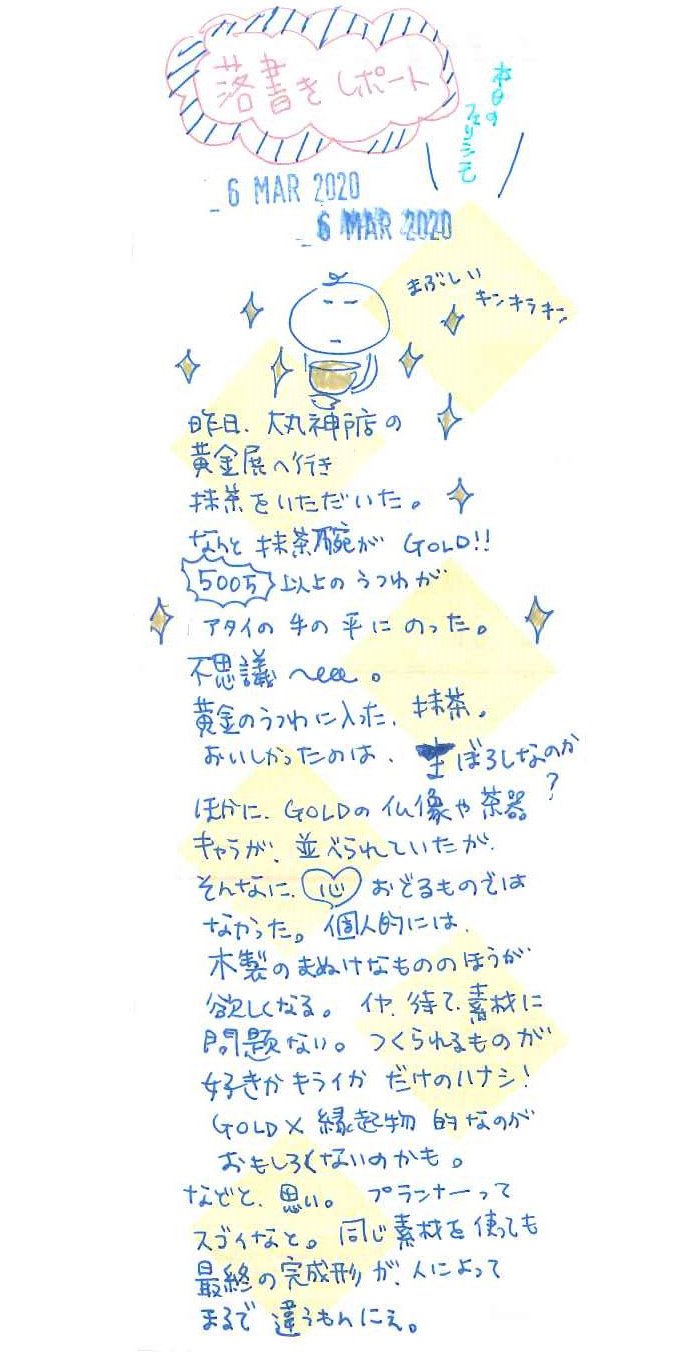 落書きレポート
本日の
フェリシモ
6 MAR 2020
6 MAR 2020
まぶしい
キンキラキン
昨日、大丸神戸店の
黄金展へ行き
抹茶をいただいた。
なんと抹茶碗が GOLD!!
500万以上のうつわが
アタイの手の平にのった。
不思議〜
黄金のうつわに入った、抹茶。
おいしかったのは、まぼろしなのか
?
ほかに、GOLDの仏像や茶器
キャラが、並べられていたが、
そんなに、心おどるものでは
なかった。個人的には、
木製のまぬけなもののほうが
欲しくなる。イヤ、待て、素材に
問題ない。つくられるものが
好きかキライかだけのハナシ!
GOLD×縁起物的なのが
おもしろくないのかも。
などと、思い。プランナーって
スゴイなと。同じ素材を使っても
最終の完成形が、人によって
まるで違うもんにえ。